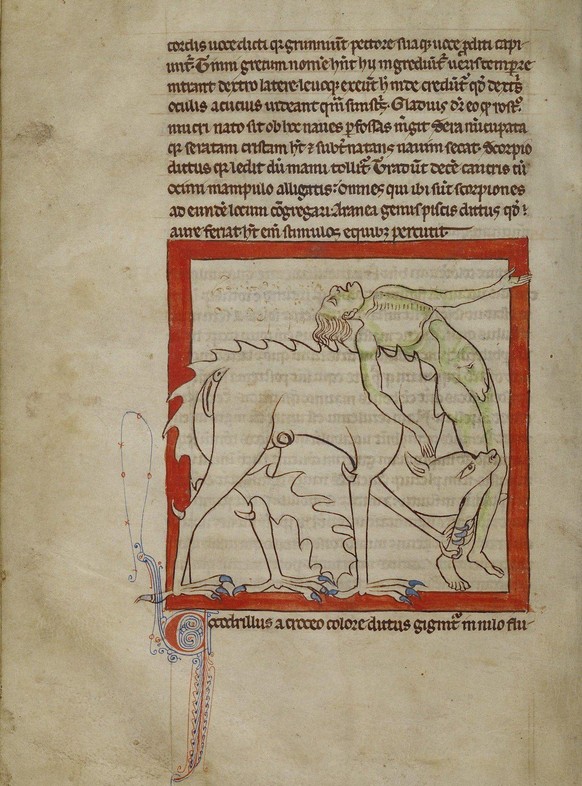 cordis uoce dicti qr grunniunt pectore sua qr uoce proditi capi-
unt. Timi grecum nom̄e hn̄t hii ingrediunt̄ uerastempre
intrant dextro latere leuoq; exeunt hinde credunt̄ qd̓ dextris
oculis acucius uideant qm̄ sinistris. Gladius dr̄ eo qr rostro
mucronato sit ob hoc naues perfossas mergit. Serra nūcupata
qr serratam cristam ht̄ & subt̓ natans nauim secat. Scorpio
dictus qr ledit dū manu tollit̄. Tradunt decē cancris cū
ocimi manipulo alligatis. Omnes qui ibi sūt scorpiones
ad eundē locum cōgregari. Aranea genus piscis dictus qd̓
aure feriat. ht̄ em̄ stimulos e quibꝫ percutit
Cocodrillus a croceo colore dictus gignit̄ in nilo flu-